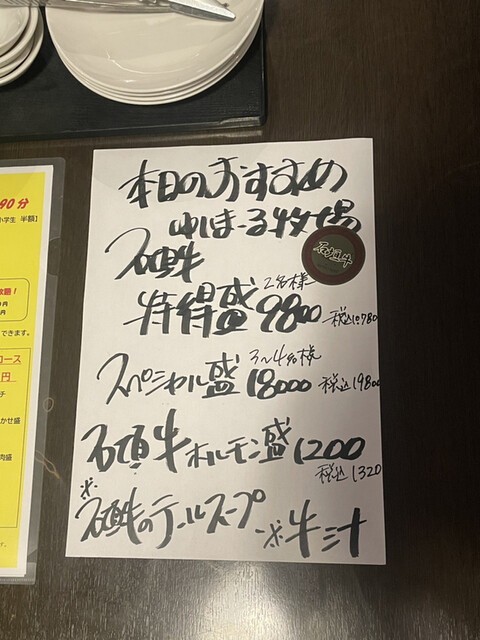 本日のおすすめ
ゆいまーる牧場
石垣牛
石垣牛
2名様
特得盛 9800 税込10,780
3〜4名様
スペシャル盛 18000 税込19800
石垣牛ホルモン盛 1200
税込1320
※石垣牛のテールスープ ※牛汁
90分
小学生 半額】
放題！
円
円
できます。
コース
円
チ
かせ盛
肉盛
す。